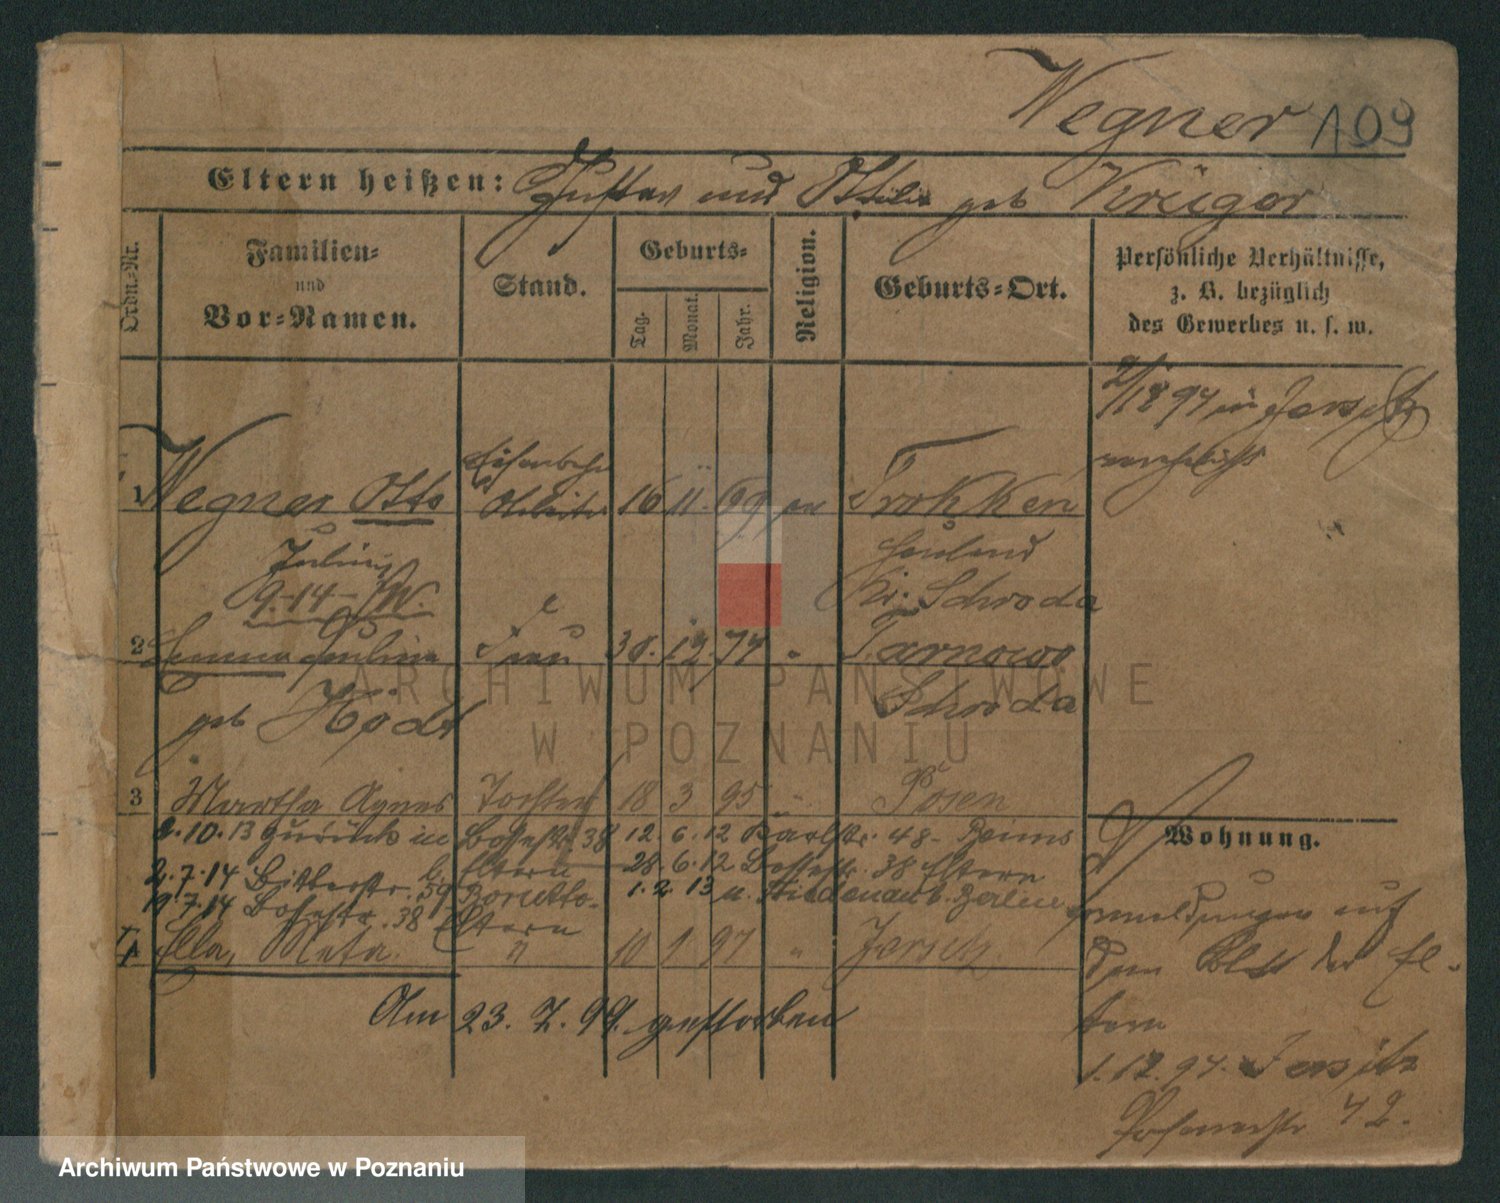 Wegner 109
Eltern heißen: Gustav und Ottilie geb Krüger
Ordn.-Nr.
Familien-
und
Vor-Namen.
Stand.
Geburts-
Tag.
Monat.
Jahr.
Religion.
Geburts-Ort.
Persönliche Verhältnisse,
z. B. bezüglich
des Gewerbes u. s. w.
2/12 94 in Jersitz
verehelicht
1 Wegner Otto Eisenbahn Arbeiter 16 11. 69 ev Trokken
Julius
hauland
9.-14- W.
Kr. Schroda
2 Emma Pauline Frau 30. 12. 74 " Tarnowo
geb Schroda
3 Martha Agnes Tochter 18 3 95 " Posen
2.10.13 zurück in Bosestr. 38 12. 6. 12 Karlstr. 48-
2.7.14 Bitterstr. b. Eltern 28. 6. 12 Bosestr. 38 Eltern
19.7.14 Bosestr. 38 Eltern 1. 2. 13 n. b. Berlin
4 Ella, Meta. " 10 1 97 " Jersitz.
Am 23. 7. 99. gestorben
Wohnung.
Anmeldungen auf
dem Blatt der El-
tern
1.12.94. Jersitz
42.
ARCHIWUM PAŃSTWOWE
W POZNANIU
Archiwum Państwowe w Poznaniu